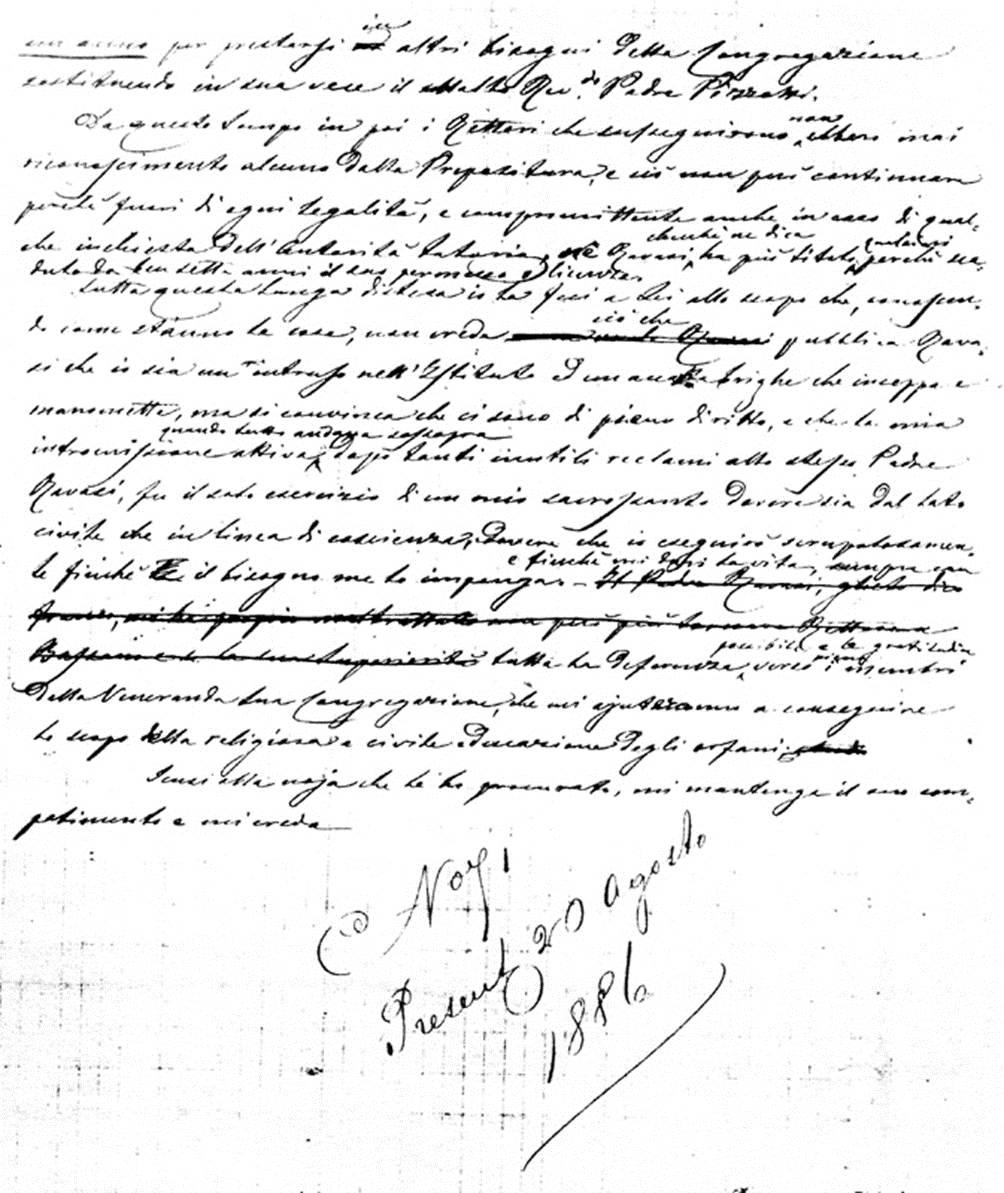 un anno per prestarsi in altri bisogni della Congregazione
sostituendo in sua vece il Rev.do Padre Pizzotti.
Da questo tempo in poi i Rettori che susseguirono non ebbero mai
riconoscimento alcuno dalla Prepositura, e ciò non può continuare
perchè fuori di ogni legalità, e compromittente anche in caso di qual-
che inchiesta dell'Autorità tutoria, nè Ravasi, checchè ne dica, ha più titolo perchè sca-
duto da ben sette anni il suo permesso e licenza.
Tutta questa lunga distesa io la feci a Lei allo scopo che, conoscen-
do come stanno le cose, non creda ciò che pubblica Rava-
si che io sia un intruso nell'Istituto ed un attabrighe che inceppa e
manomette, ma si convinca che ci sono di pieno diritto, e che la mia
intromissione attiva, quando tutto andava sossopra dopo tanti inutili reclami allo stesso Padre
Ravasi, fu il solo esercizio di un mio sacrosanto dovere sia dal lato
civile che in linea di coscienza, dovere che io eseguirò scrupolosamen-
te finchè il bisogno me lo imponga e finchè mi duri la vita, sempre con
tutta la deferenza possibile e la gratitudine verso i membri
della Veneranda sua Congregazione, che mi ajuteranno a conseguire
lo scopo della religiosa e civile educazione degli orfani.
Scusi alla noja che le ho procurato, mi mantenga il suo com-
patimento e mi creda
Present 20 Agosto
1886